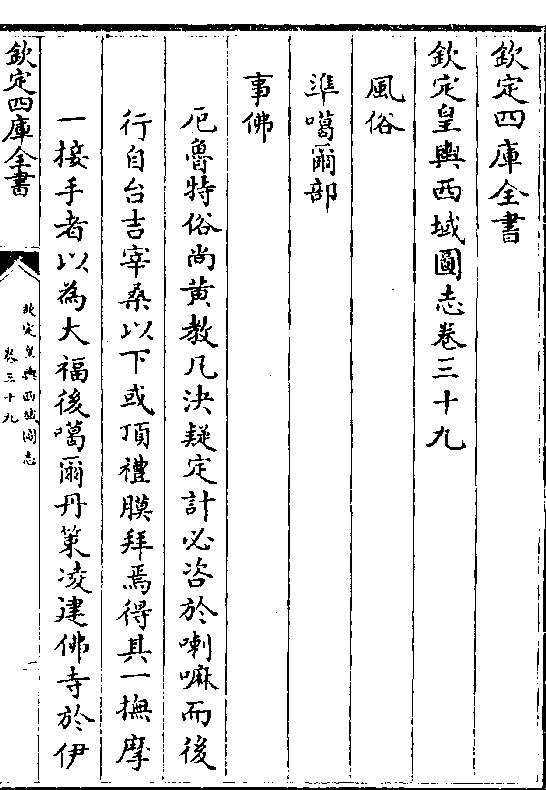 欽定四庫全書
欽定皇輿西域圖志卷三十九
風俗
準噶爾部
事佛
厄魯特俗尚黃教凡決疑定計必咨於喇嘛而後
行自台吉宰桑以下或頂禮膜拜焉得其一撫摩
一接手者以為大福後噶爾丹策凌建佛寺於伊
欽定四庫全書
欽定皇輿西域圖志
卷三十九
一